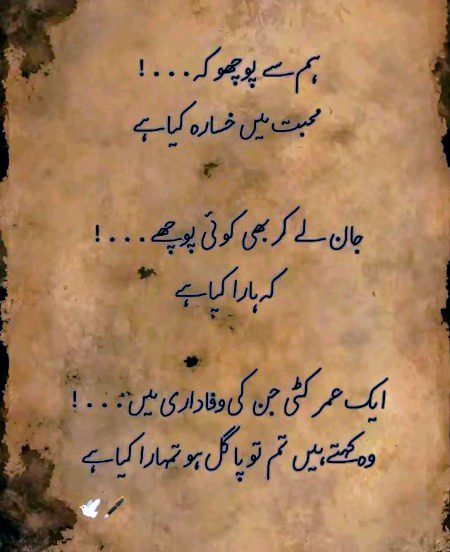 ہم سے پوچھو کہ...!
محبت میں خسارہ کیا ہے
جان لے کر بھی کوئی پوچھے...!
کہ ہارا کیا ہے
ایک عمر کٹی جن کی وفاداری میں...!
وہ کہتے ہیں تم تو پاگل ہو تمہارا کیا ہے